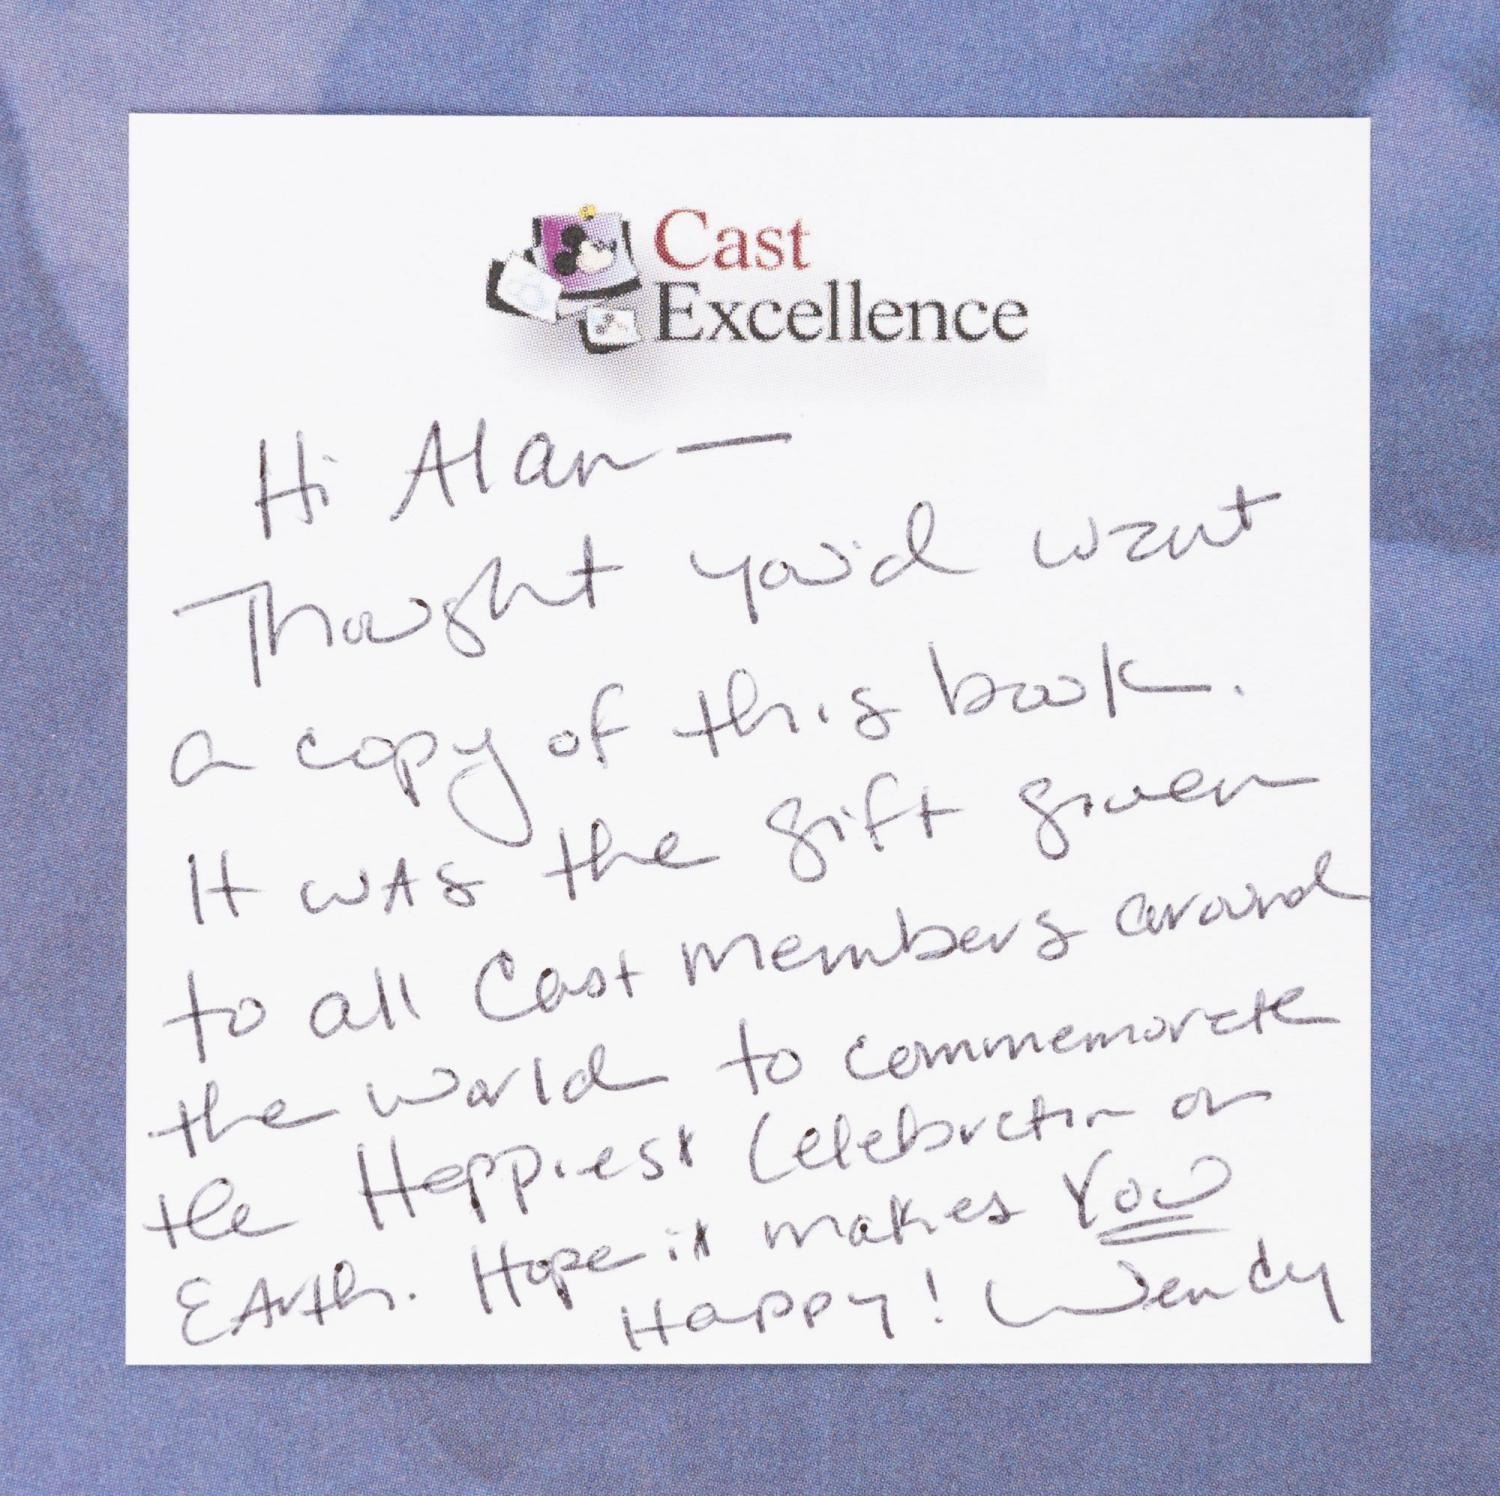 Cast
Excellence
Hi Alan —
Thought you'd want
a copy of this book.
It was the gift given
to all Cast members around
the world to commemorate
the Happiest Celebration on
Earth. Hope it makes You
Happy! Wendy